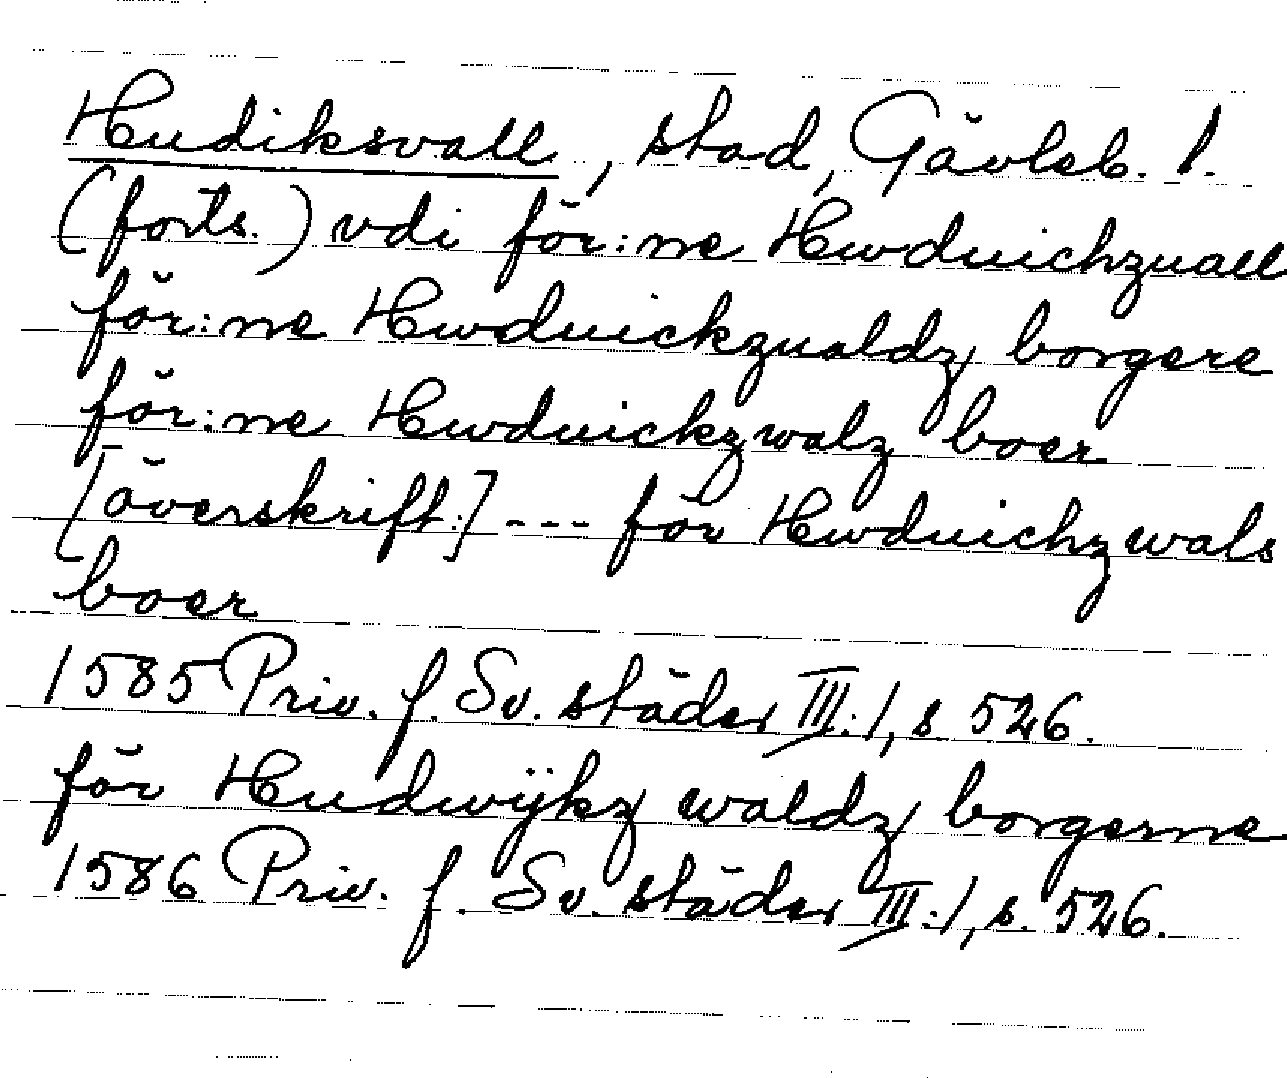 Hudiksvall, stad, Gävleb. l.
(forts.) vdi för:ne Hwduichzuall
för:ne Hwduickzualdz borgere
för:ne Hwduickz walz boer
[överskrift:] --- för Hwduichz wals
boer
1585 Priv. f. Sv. städer III:1, s 526.
för Hudwÿkz waldz borgerne
1586 Priv. f. Sv. städer III:1, s. 526.